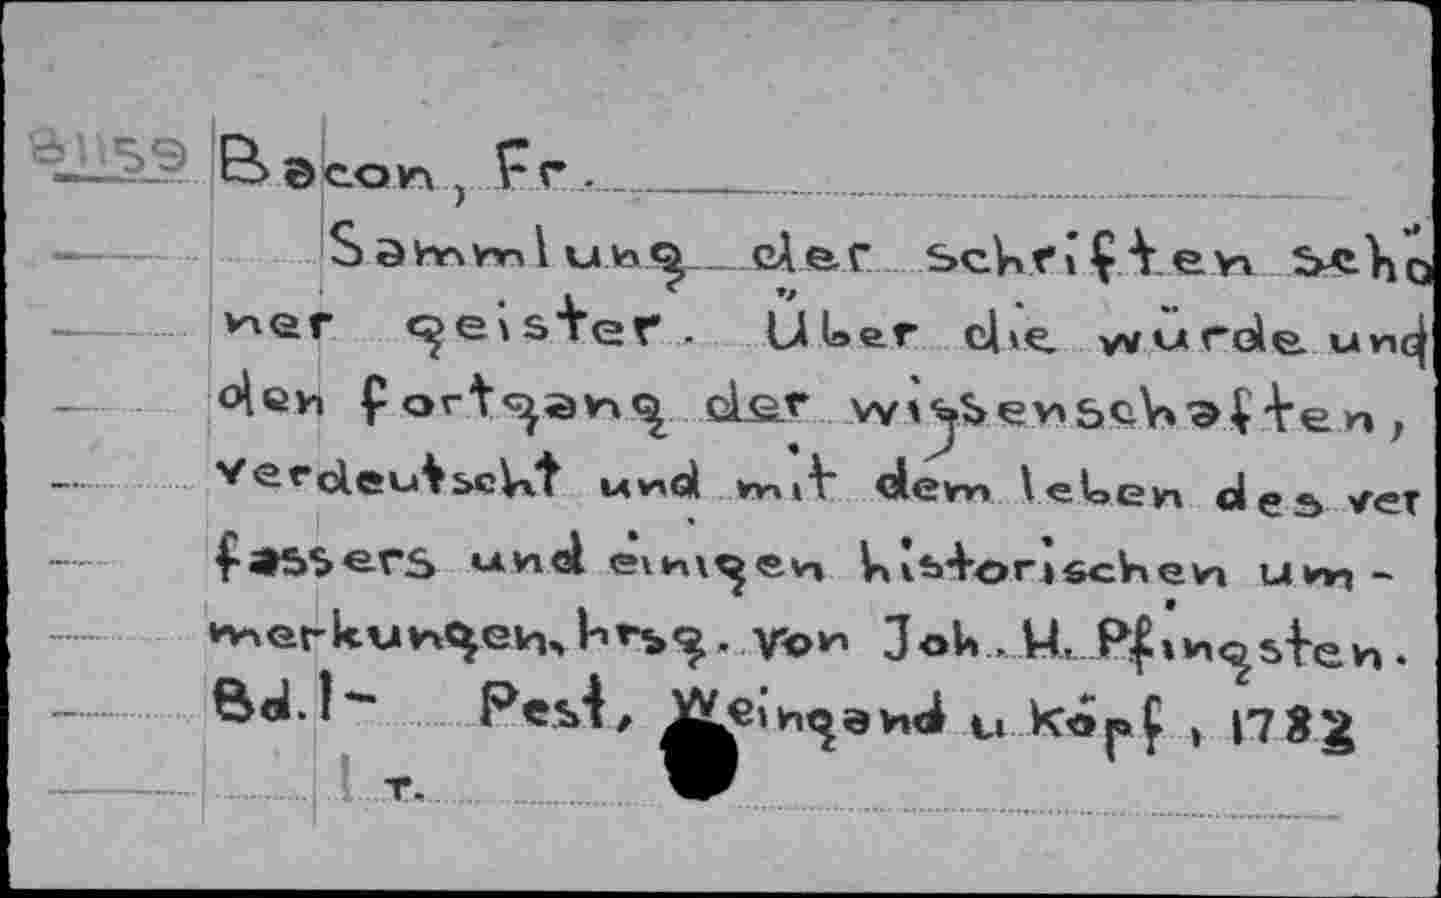 81159 Bacon, Fr.
Sammlung der schriften schö
ner geister. Über die würde und
den fortgang der wissenschaften,
verdeutscht und mit dem leben des ver
fassers und einigen historischen um-
merkungen, hrsg. von Joh. H. Pfingsten.
Bd. 1- Pest, Weingand u Köpf, 1783
1 т.